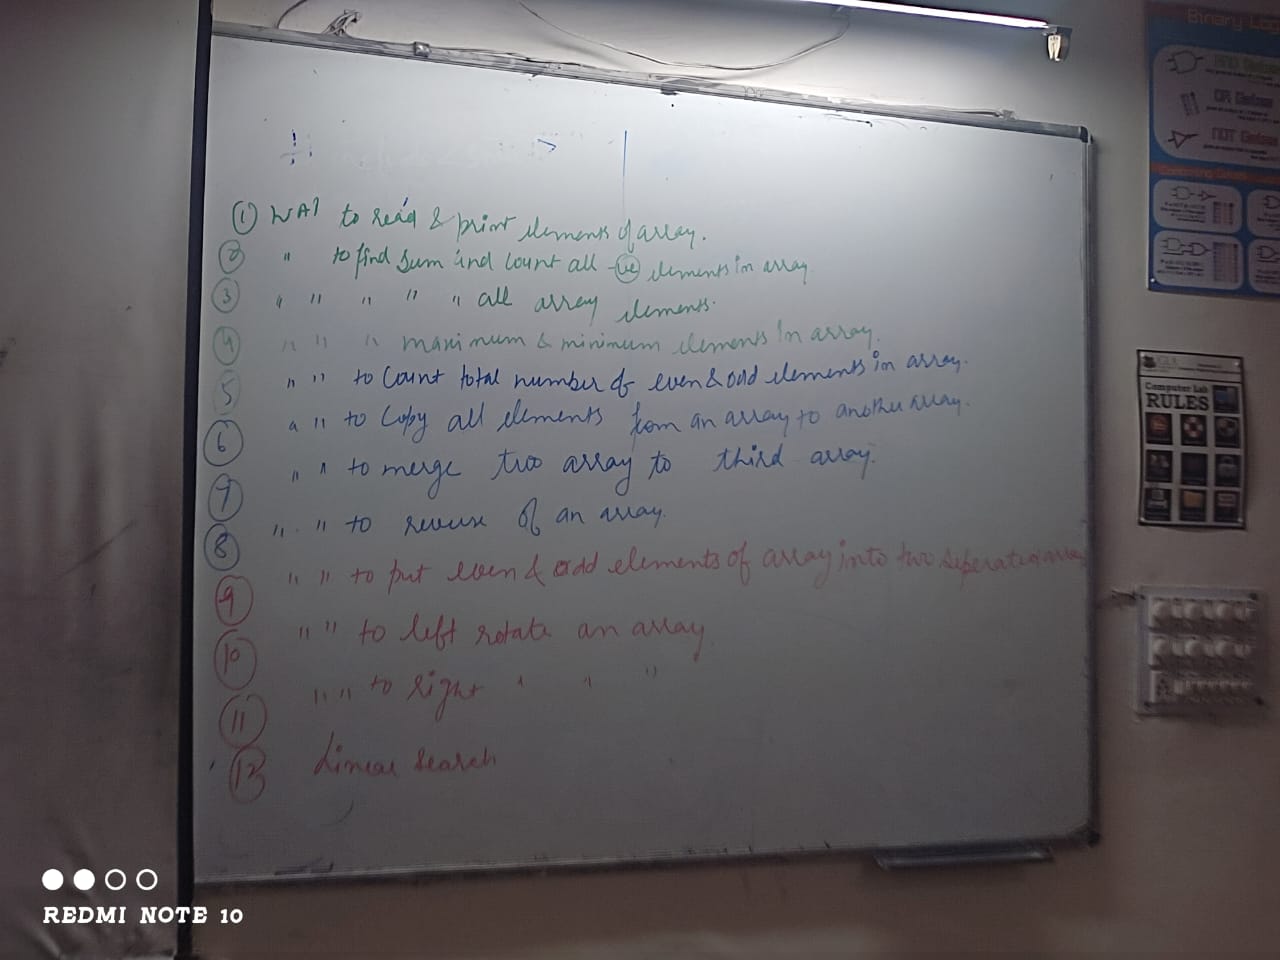 ① WAP to read & print elements of array.
② " to find sum and count all -ve elements in array
③ " " " " " all array elements.
④ " " " maximum & minimum elements in array.
5 " " to count total number of even & odd elements in array.
⑥ " " to copy all elements from an array to another array.
⑦ " " to merge two array to third array.
⑧ " " to reverse of an array.
⑨ " " to put even & odd elements of array into two seperate array
⑩ " " to left rotate an array
⑪ " " to right " " "
⑫ Linear Search
Binary Log
OR Gate
NOT Gate
Computer Lab
RULES
REDMI NOTE 10